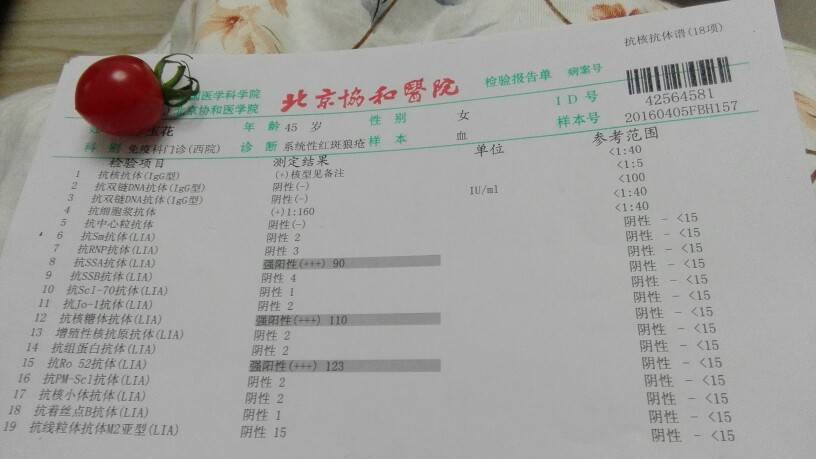 抗核抗体谱(18项)
国医学科学院 北京协和醫院 检验报告单 病案号
北京协和医学院 ID号 42564581
玉花 年龄 45 岁 性别 女 样本号 20160405FBH157
科别 免疫科门诊(西院) 诊断 系统性红斑狼疮 样本 血
检验项目 测定结果 单位 参考范围
1 抗核抗体(IgG型) (+)核型见备注 <1:40
2 抗双链DNA抗体(IgG型) 阴性(-) <1:5
3 抗双链DNA抗体(IgG型) 阴性(-) IU/ml <100
4 抗细胞浆抗体 (+)1:160 <1:40
5 抗中心粒抗体 阴性(-) <1:40
6 抗Sm抗体(LIA) 阴性 2 阴性 - <15
7 抗RNP抗体(LIA) 阴性 3 阴性 - <15
8 抗SSA抗体(LIA) 强阳性(+++) 90 阴性 - <15
9 抗SSB抗体(LIA) 阴性 4 阴性 - <15
10 抗Scl-70抗体(LIA) 阴性 1 阴性 - <15
11 抗Jo-1抗体(LIA) 阴性 2 阴性 - <15
12 抗核糖体抗体(LIA) 强阳性(+++) 110 阴性 - <15
13 增殖性核抗原抗体(LIA) 阴性 2 阴性 - <15
14 抗组蛋白抗体(LIA) 阴性 2 阴性 - <15
15 抗Ro 52抗体(LIA) 强阳性(+++) 123 阴性 - <15
16 抗PM-Scl抗体(LIA) 阴性 2 阴性 - <15
17 抗核小体抗体(LIA) 阴性 2 阴性 - <15
18 抗着丝点B抗体(LIA) 阴性 1 阴性 - <15
19 抗线粒体抗体M2亚型(LIA) 阴性 15 阴性 - <15